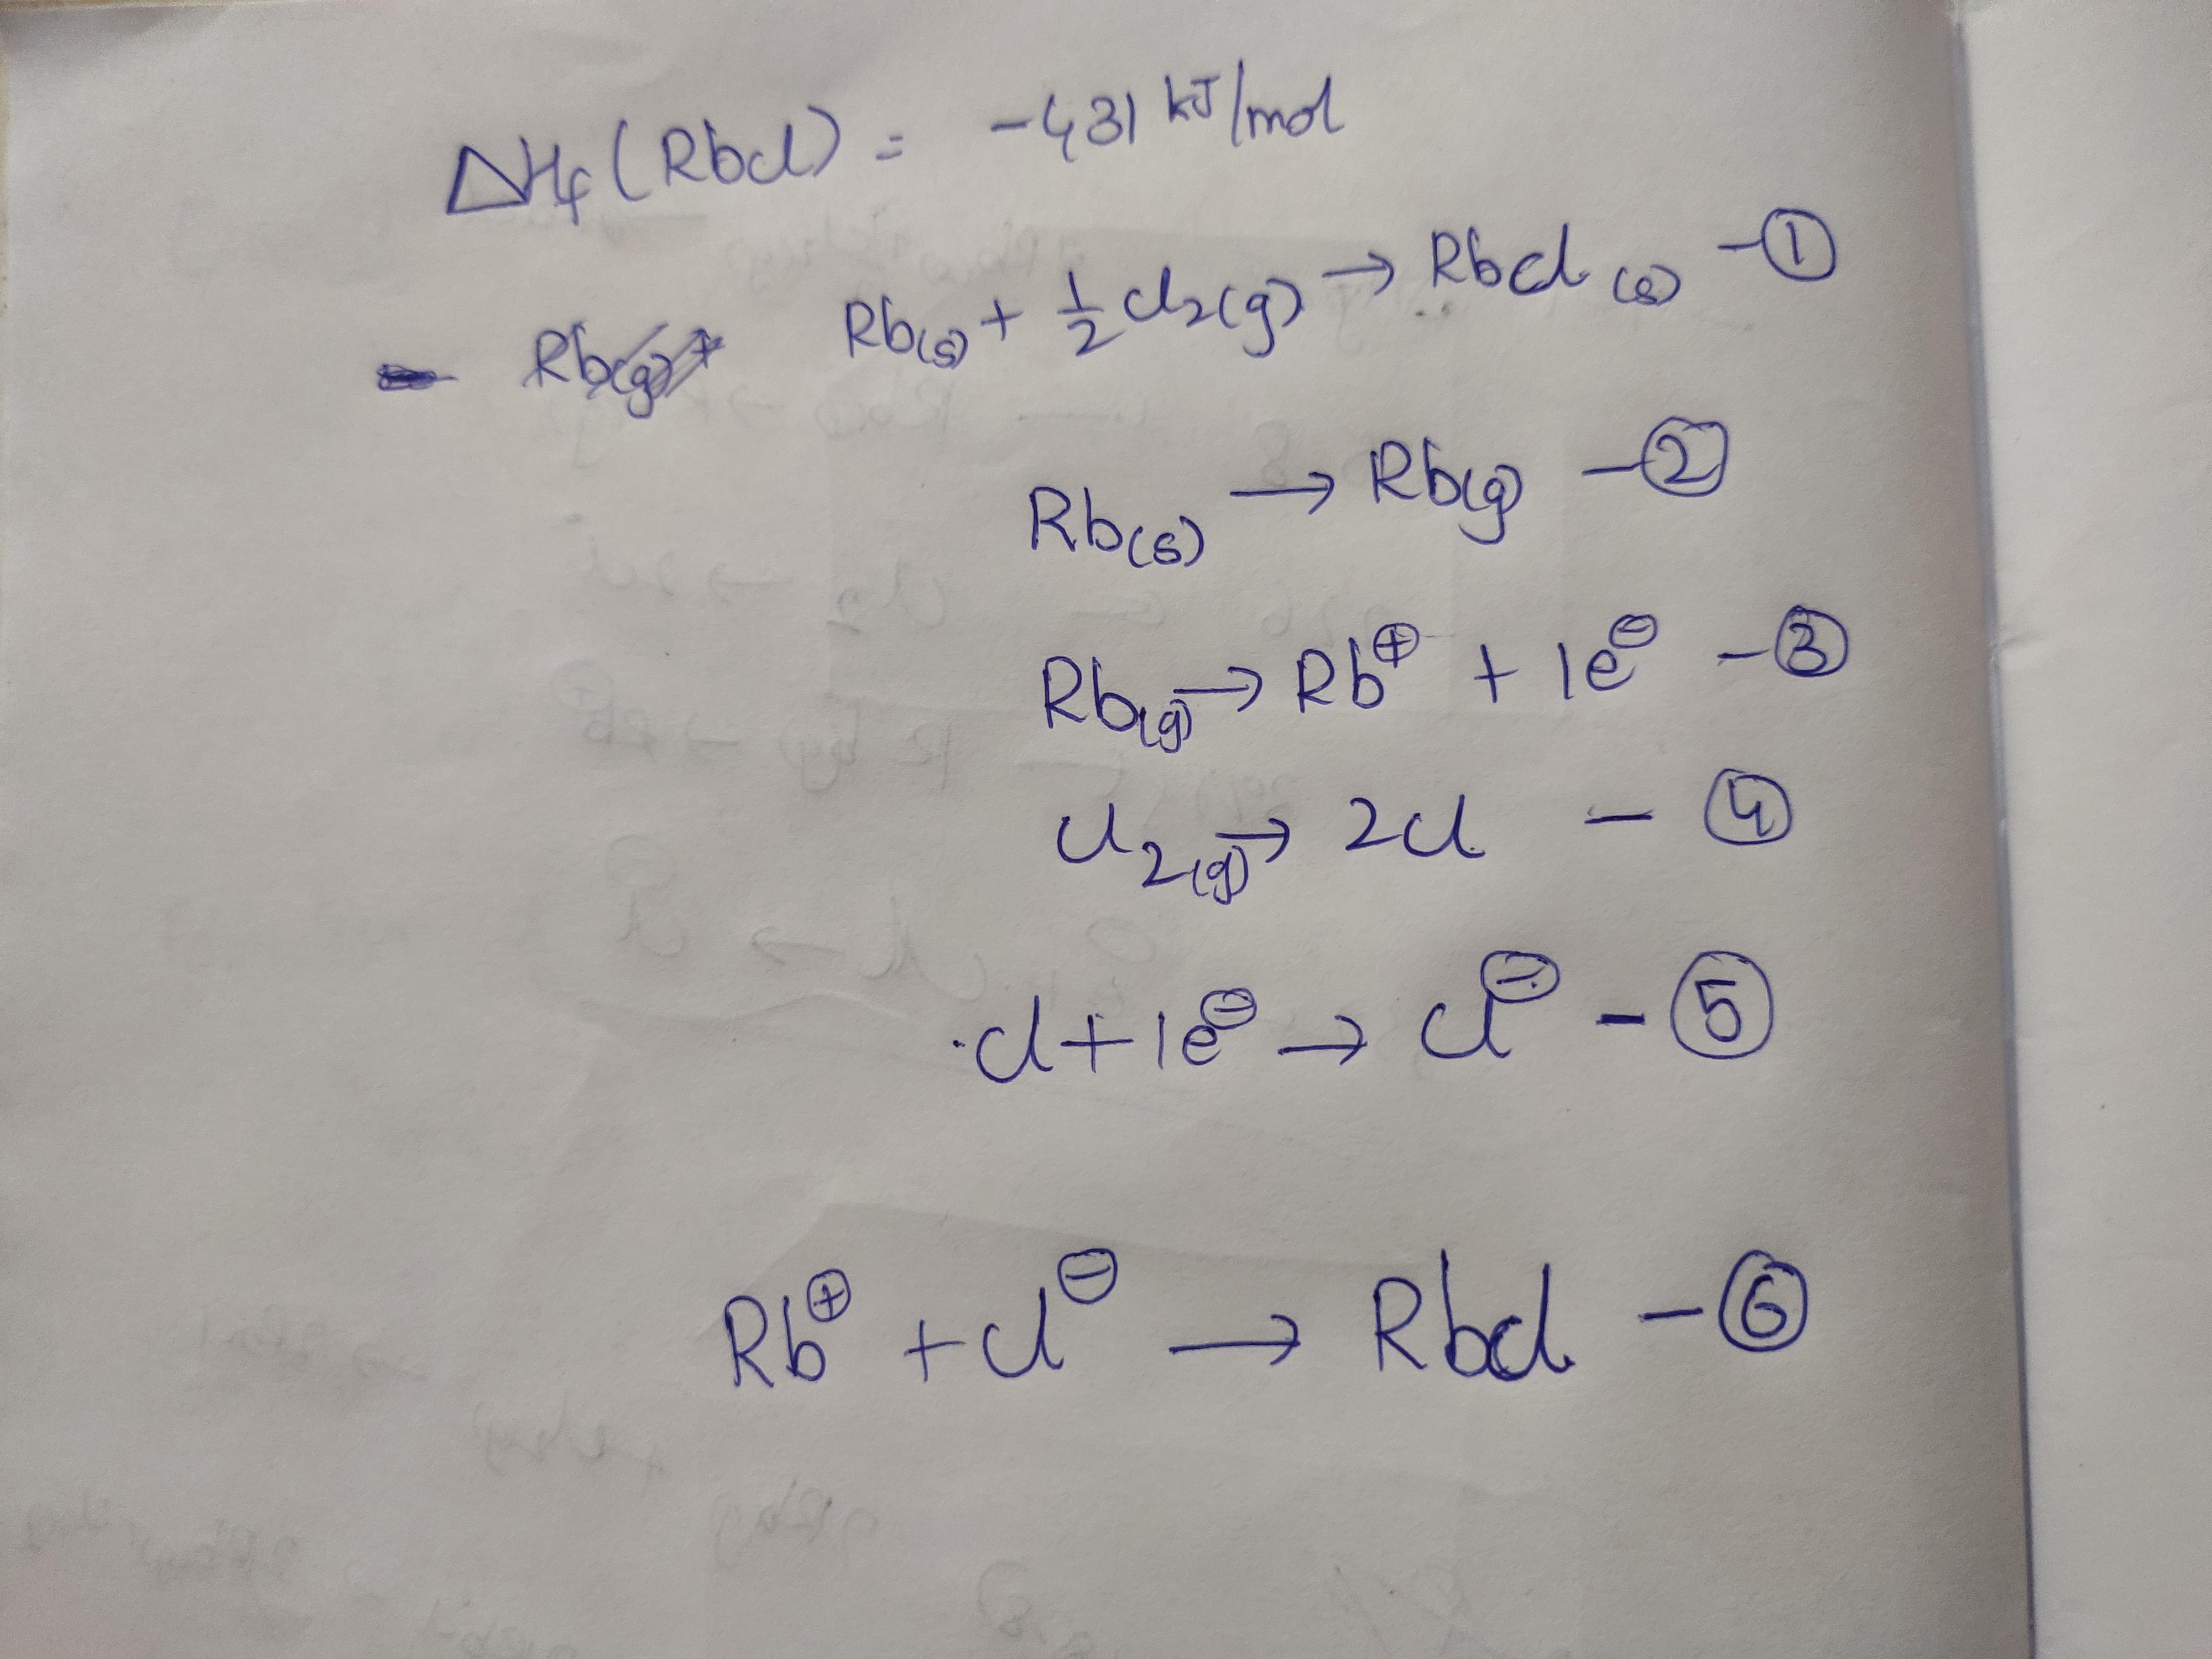 ΔHf (RbCl) = -431 kJ/mol
Rb(s) + 1/2 Cl2(g) → RbCl (s) -①
Rb(s) → Rb(g) -②
Rb(g) → Rb⊕ + 1e⊖ -③
Cl2(g) → 2Cl - ④
Cl + 1e⊖ → Cl⊖ - ⑤
Rb⊕ + Cl⊖ → RbCl - ⑥